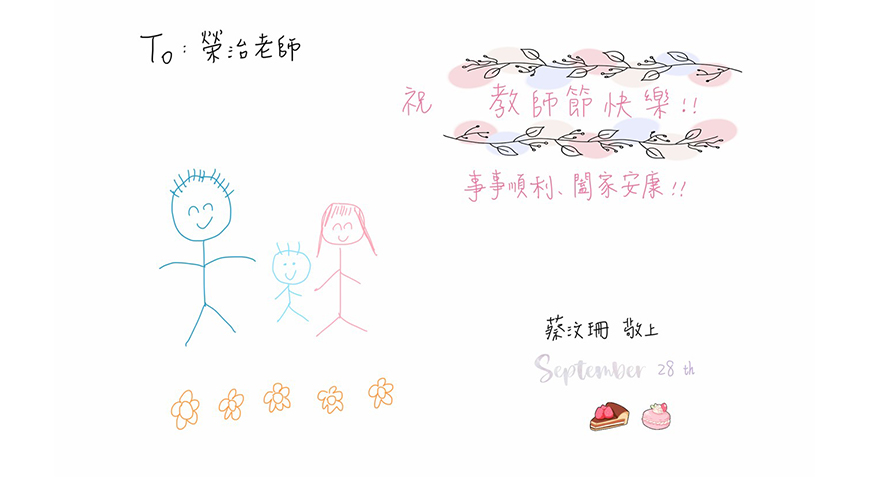 To：榮治老師
祝 教師節快樂!!
事事順利、闔家安康!!
蔡汶珊 敬上
September 28 th